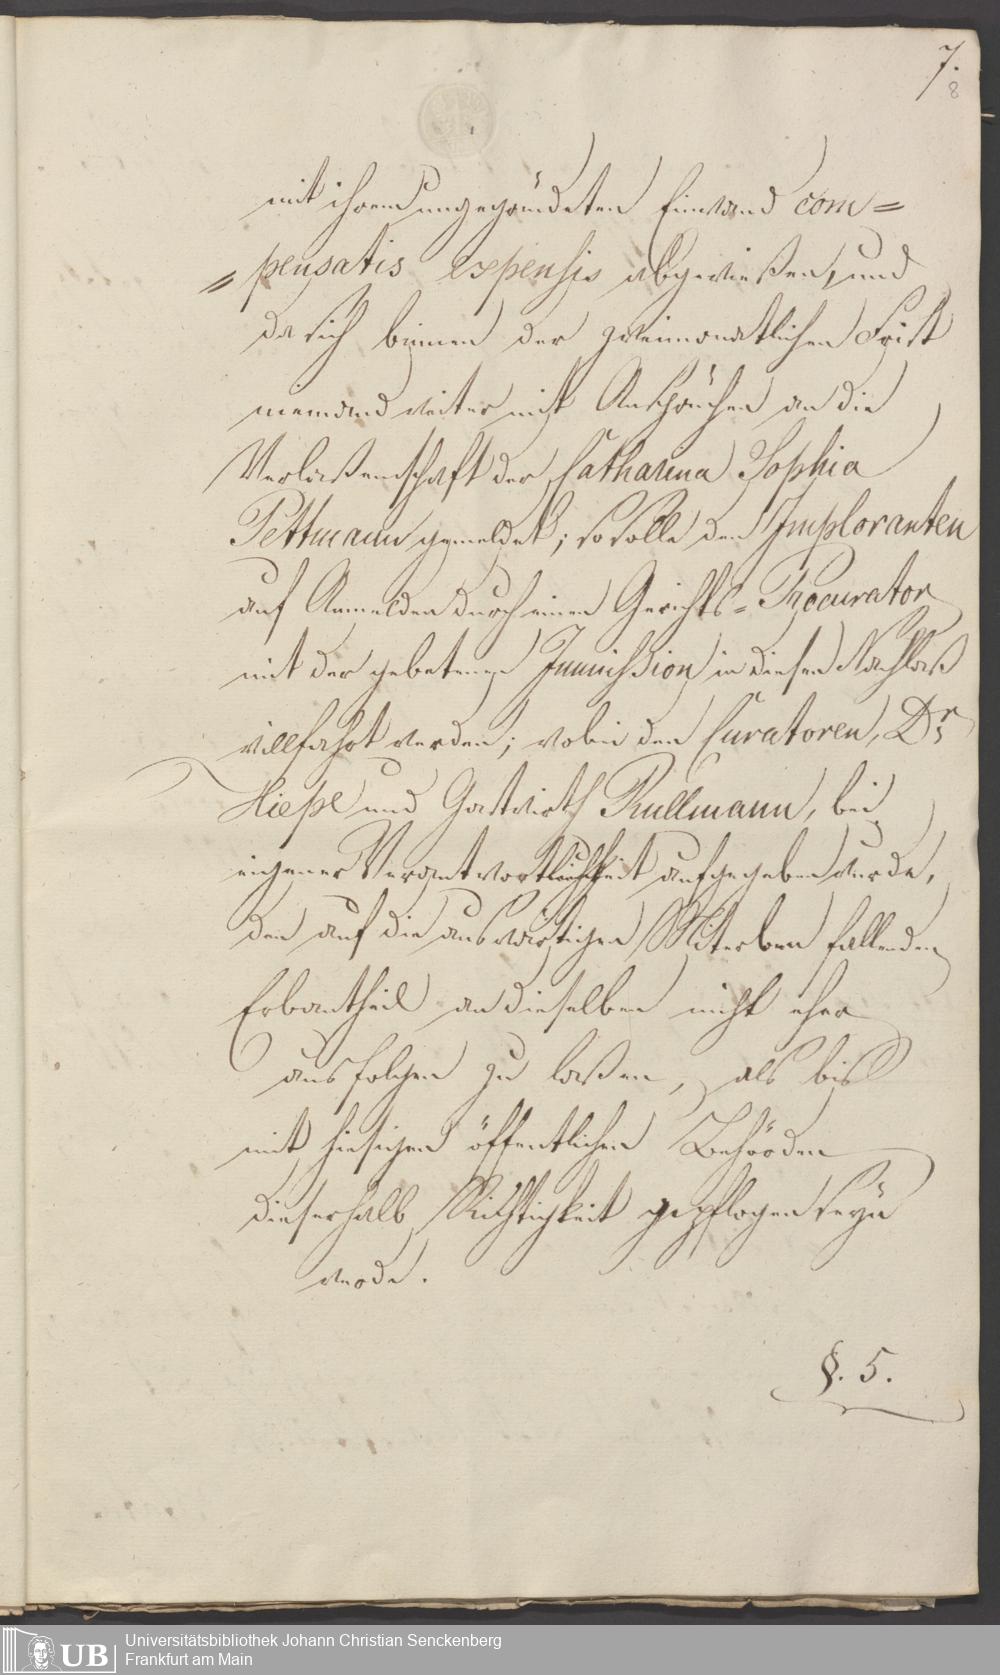 7.
8
mit ihrem ungegründeten Einwand com=
=pensatis expensis abgewießen, und
da sich binnen der zweimonatlichen Frist
niemand weiter mit Ansprüchen an die
Verlaßenschaft der Catharina Sophia
Pettmann gemeldet; so solle den Imploranten
auf Anmelden durch einen Gerichts=Procurator
mit der gebetenen Immission in diesen Nachlaß
willfahrt werden; wobei den Curatoren, Dr
Hiepe und Gastwirth Rullmann, bei
eigener Verantwortlichkeit aufgegeben wurde,
den auf die auswärtigen Miterben fallenden
Erbantheil an dieselben nicht eher
ausfolgen zu laßen, als bis
mit hiesigen öffentlichen Behörden
dieserhalb Richtigkeit gepflogen seyn
werde.
§. 5.
UB
Universitätsbibliothek Johann Christian Senckenberg
Frankfurt am Main